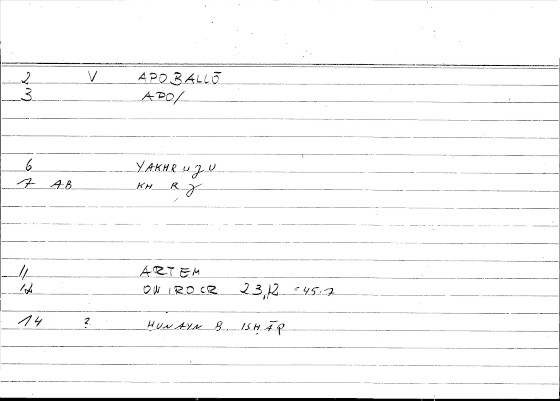 2 V APOBALLŌ
3 APO/
6 YAKHRUJU
7 AB KH R J
11 ARTEM
12 ONIROCR 23,12 =45.7
14 ? HUNAYN B. ISHĀQ